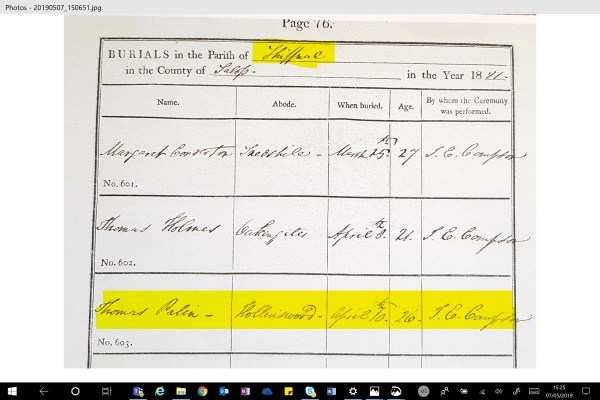 Photos - 20190507_150651.jpg
Page 76.
BURIALS in the Parish of Shiffnal
in the County of Salop. in the Year 18 41.
Name. Abode. When buried. Age. By whom the Ceremony was performed.
Margaret March 25th 27
No. 601.
Thomas Holmes Oakengates April 8th 21. J. C. Compson
No. 602.
Thomas Palin - Hollinswood. April 10th 26. J. C. Compson
No. 603.
15:25
07/05/2019